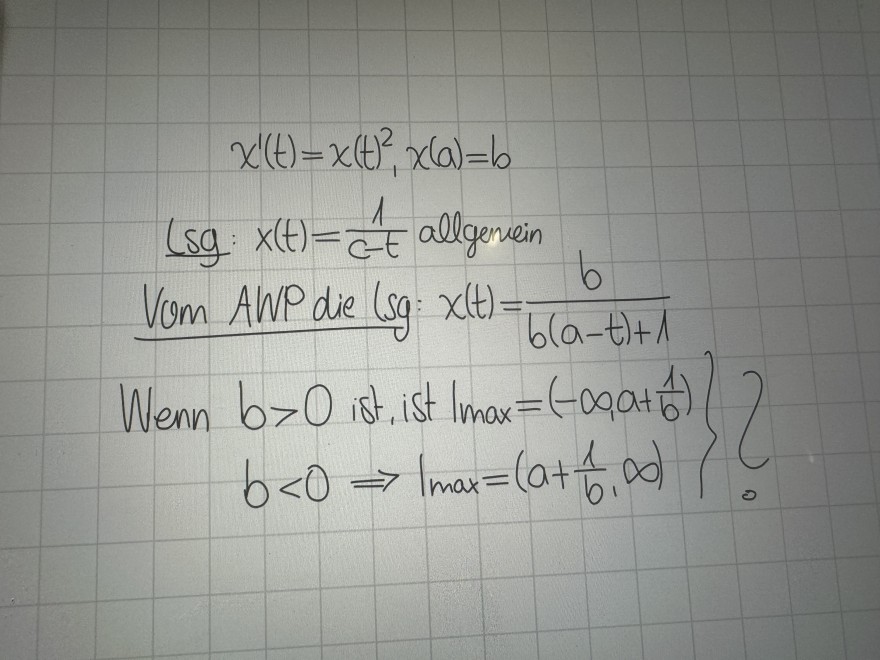 x'(t)=x(t)², x(a)=b
Lsg: x(t)=1/(c-t) allgemein
Vom AWP die Lsg: x(t)=b/(b(a-t)+1)
Wenn b>0 ist, ist Imax=(-∞,a+1/b)
b<0 ⟹ Imax=(a+1/b,∞) } ?